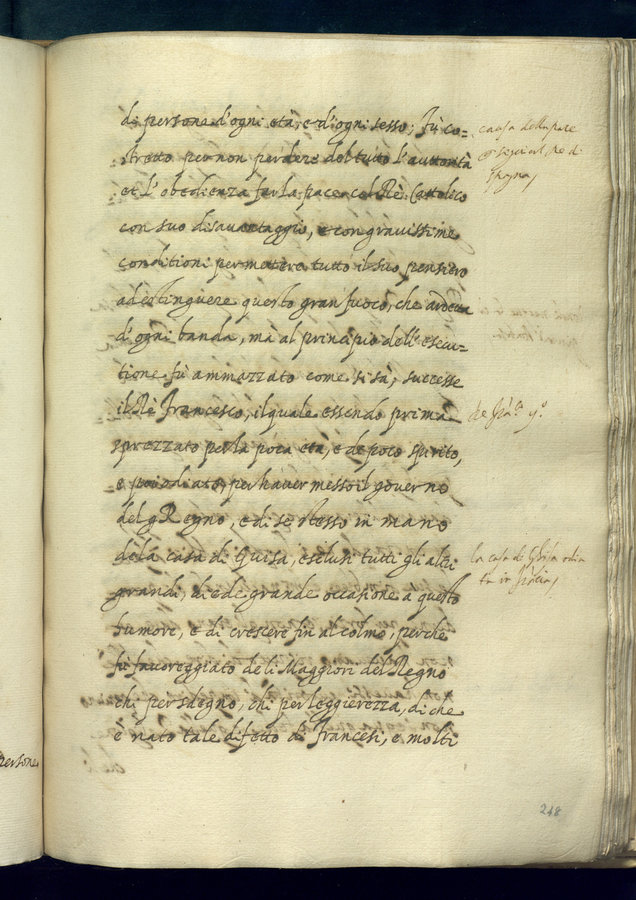 di persone d'ogni età, e d'ogni sesso; fù co=
stretto per non perdere del tutto l'auttorità
et l'obedienza far la pace col Rè Cattolico
con suo disavantaggio, e con gravissime
conditioni per metere tutto il suo pensiero
ad estinguere questo gran fuoco, che ardeva
d'ogni banda, mà al principio dell'esecu=
tione fù ammazzato come si sà, successe
il Rè Francesco, il quale essendo prima
sprezzato per la poca età, e de poco spirito,
e poi odiato, per haver messo il governo
del Regno, e di se stesso in mano
dela casa di Guisa, esclusi tutti gli altri
grandi, diede grande occasione a questo
humore, e di crescere fin al colmo, perche
fù favoreggiato deli Maggiori del Regno
chi per sdegno, chi per leggierezza, di che
è nato tale difetto de Francesi, e molti
causa della pace
col Re di
Spagna
la casa de Ghisa odia
ta in Francia
248
persone